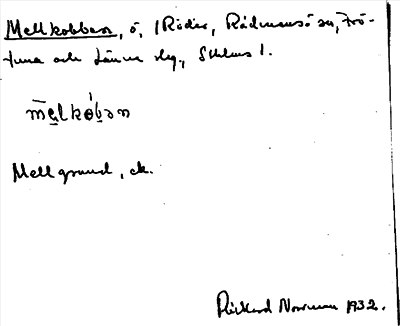 Mellkobben, ö, (Röder, Rådmansö sn, Frö-
tuna och Länna slg., Sthlms l.
mẹlkɵ̀bən
Mellgrund, ek.
Rickard Norrman 1932.